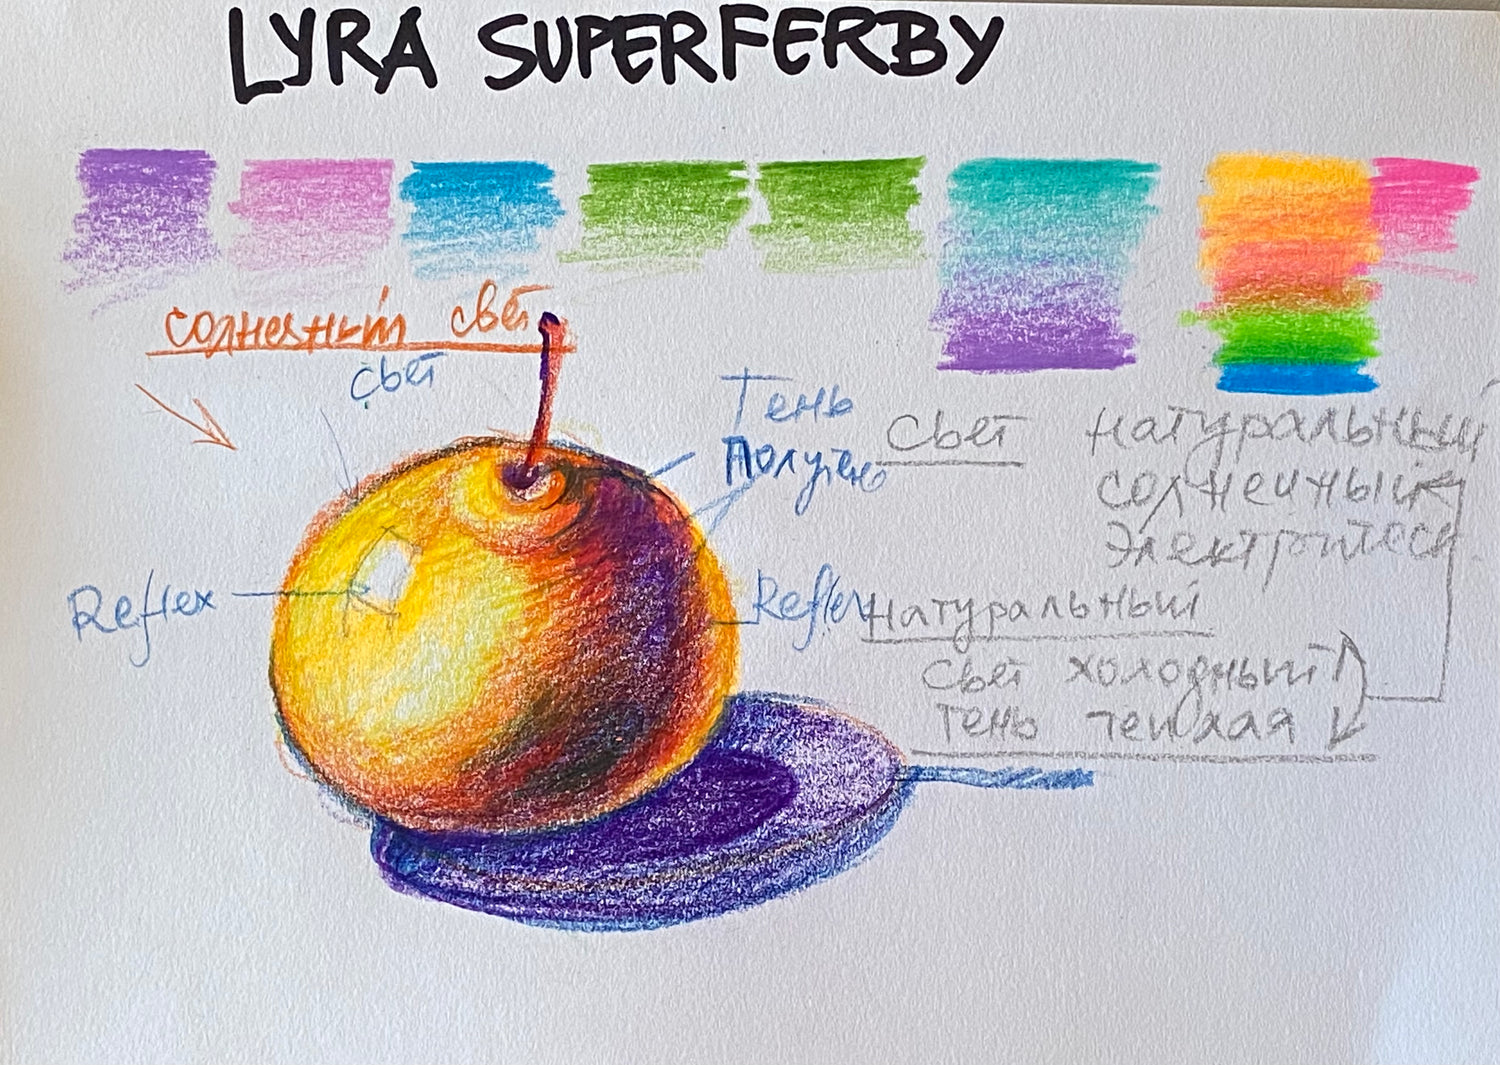 LYRA SUPERFERBY
солнечный свет
свет
Тень
Полутень
Reflex
Reflex
свет натуральный
солнечный
электрическ
натуральный
свет холодный
тень теплая